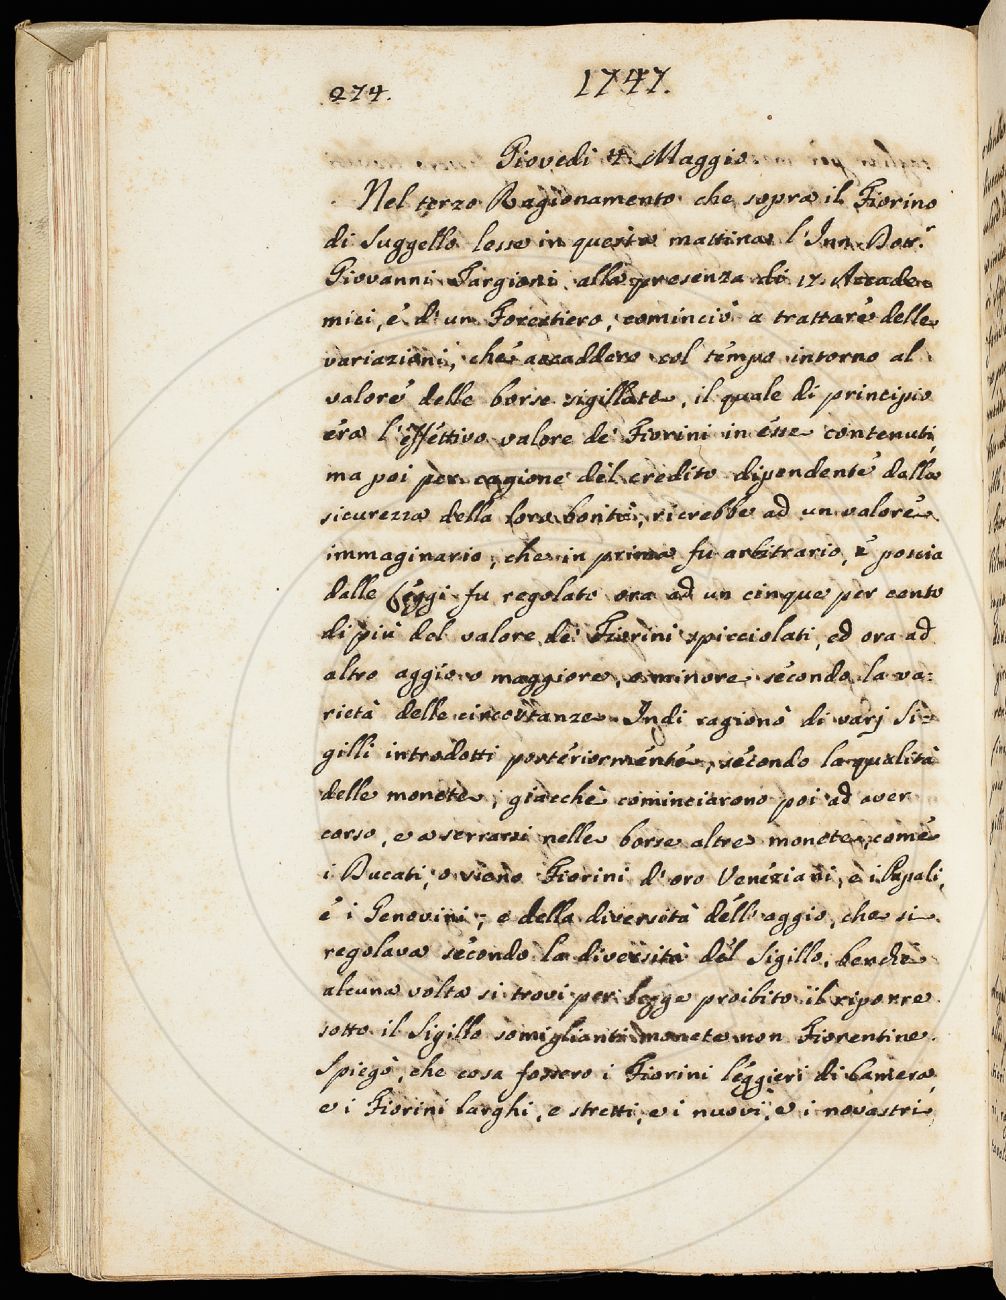 274.
1747.
Giovedi 4. Maggio
Nel terzo Ragionamento che sopra il Fiorino
di Suggello lesse in questa mattina l'Inn. Dott.r
Giovanni Targioni alla presenza di 17. Accade-
mici, e d'un Forestiero, cominciò a trattare delle
variazioni, che accaddero col tempo intorno al
valore delle borse sigillate, il quale di principio
era l'effettivo valore de' Fiorini in esse contenuti,
ma poi per cagione del credito dipendente dalla
sicurezza della loro bontà, ricrebbe ad un valore
immaginario, che in prima fu arbitrario, e poscia
dalle Leggi fu regolato ora ad un cinque per cento
di più del valore de' Fiorini spicciolati, ed ora ad
altro aggio o maggiore, o minore secondo la va=
rietà delle circostanze. Indi ragionò di varj Si=
gilli introdotti posteriormente, secondo la qualità
delle monete, giacchè cominciarono poi ad aver
corso, e a serrarsi nelle borse altre monete, come
i Ducati, o sieno Fiorini d'oro Veneziani, e i Papali,
e i Genovini; e della diversità dell'aggio, che si
regolava secondo la diversità del Sigillo, benchè
alcuna volta si trovi per legge proibito il riporre
sotto il Sigillo somiglianti monete non Fiorentine.
Spiegò, che cosa fossero i Fiorini leggieri di Camera,
e i Fiorini larghi, e stretti, e i nuovi, e i novastri,